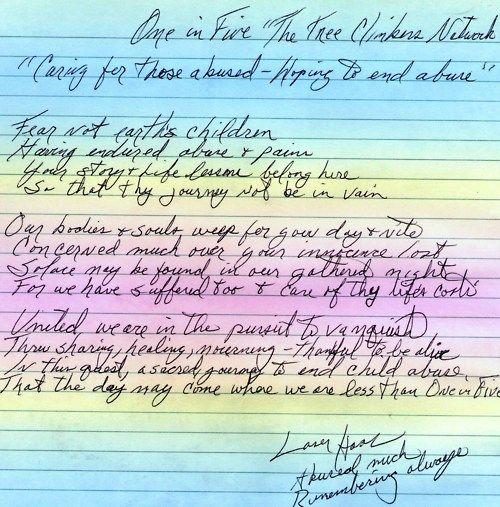 One in Five "The Tree Climbers Network
"Caring for those abused - Hoping to end abuse"
Fear not earth's children
Having endured abuse & pain
Your story & life lessons belong here
So that thy journey not be in vain
Our bodies & souls weep for you day & nite
Concerned much over your innocence lost
Solace may be found in our gathered might
For we have suffered too & care of thy life's cost
United, we are in the pursuit to vanquish
Threw sharing, healing, mourning - thankful to be alive
In this quest, a sacred journey to end child abuse
That the day may come where we are less than One in Five
Laser Haas
Abused much
Remembering always